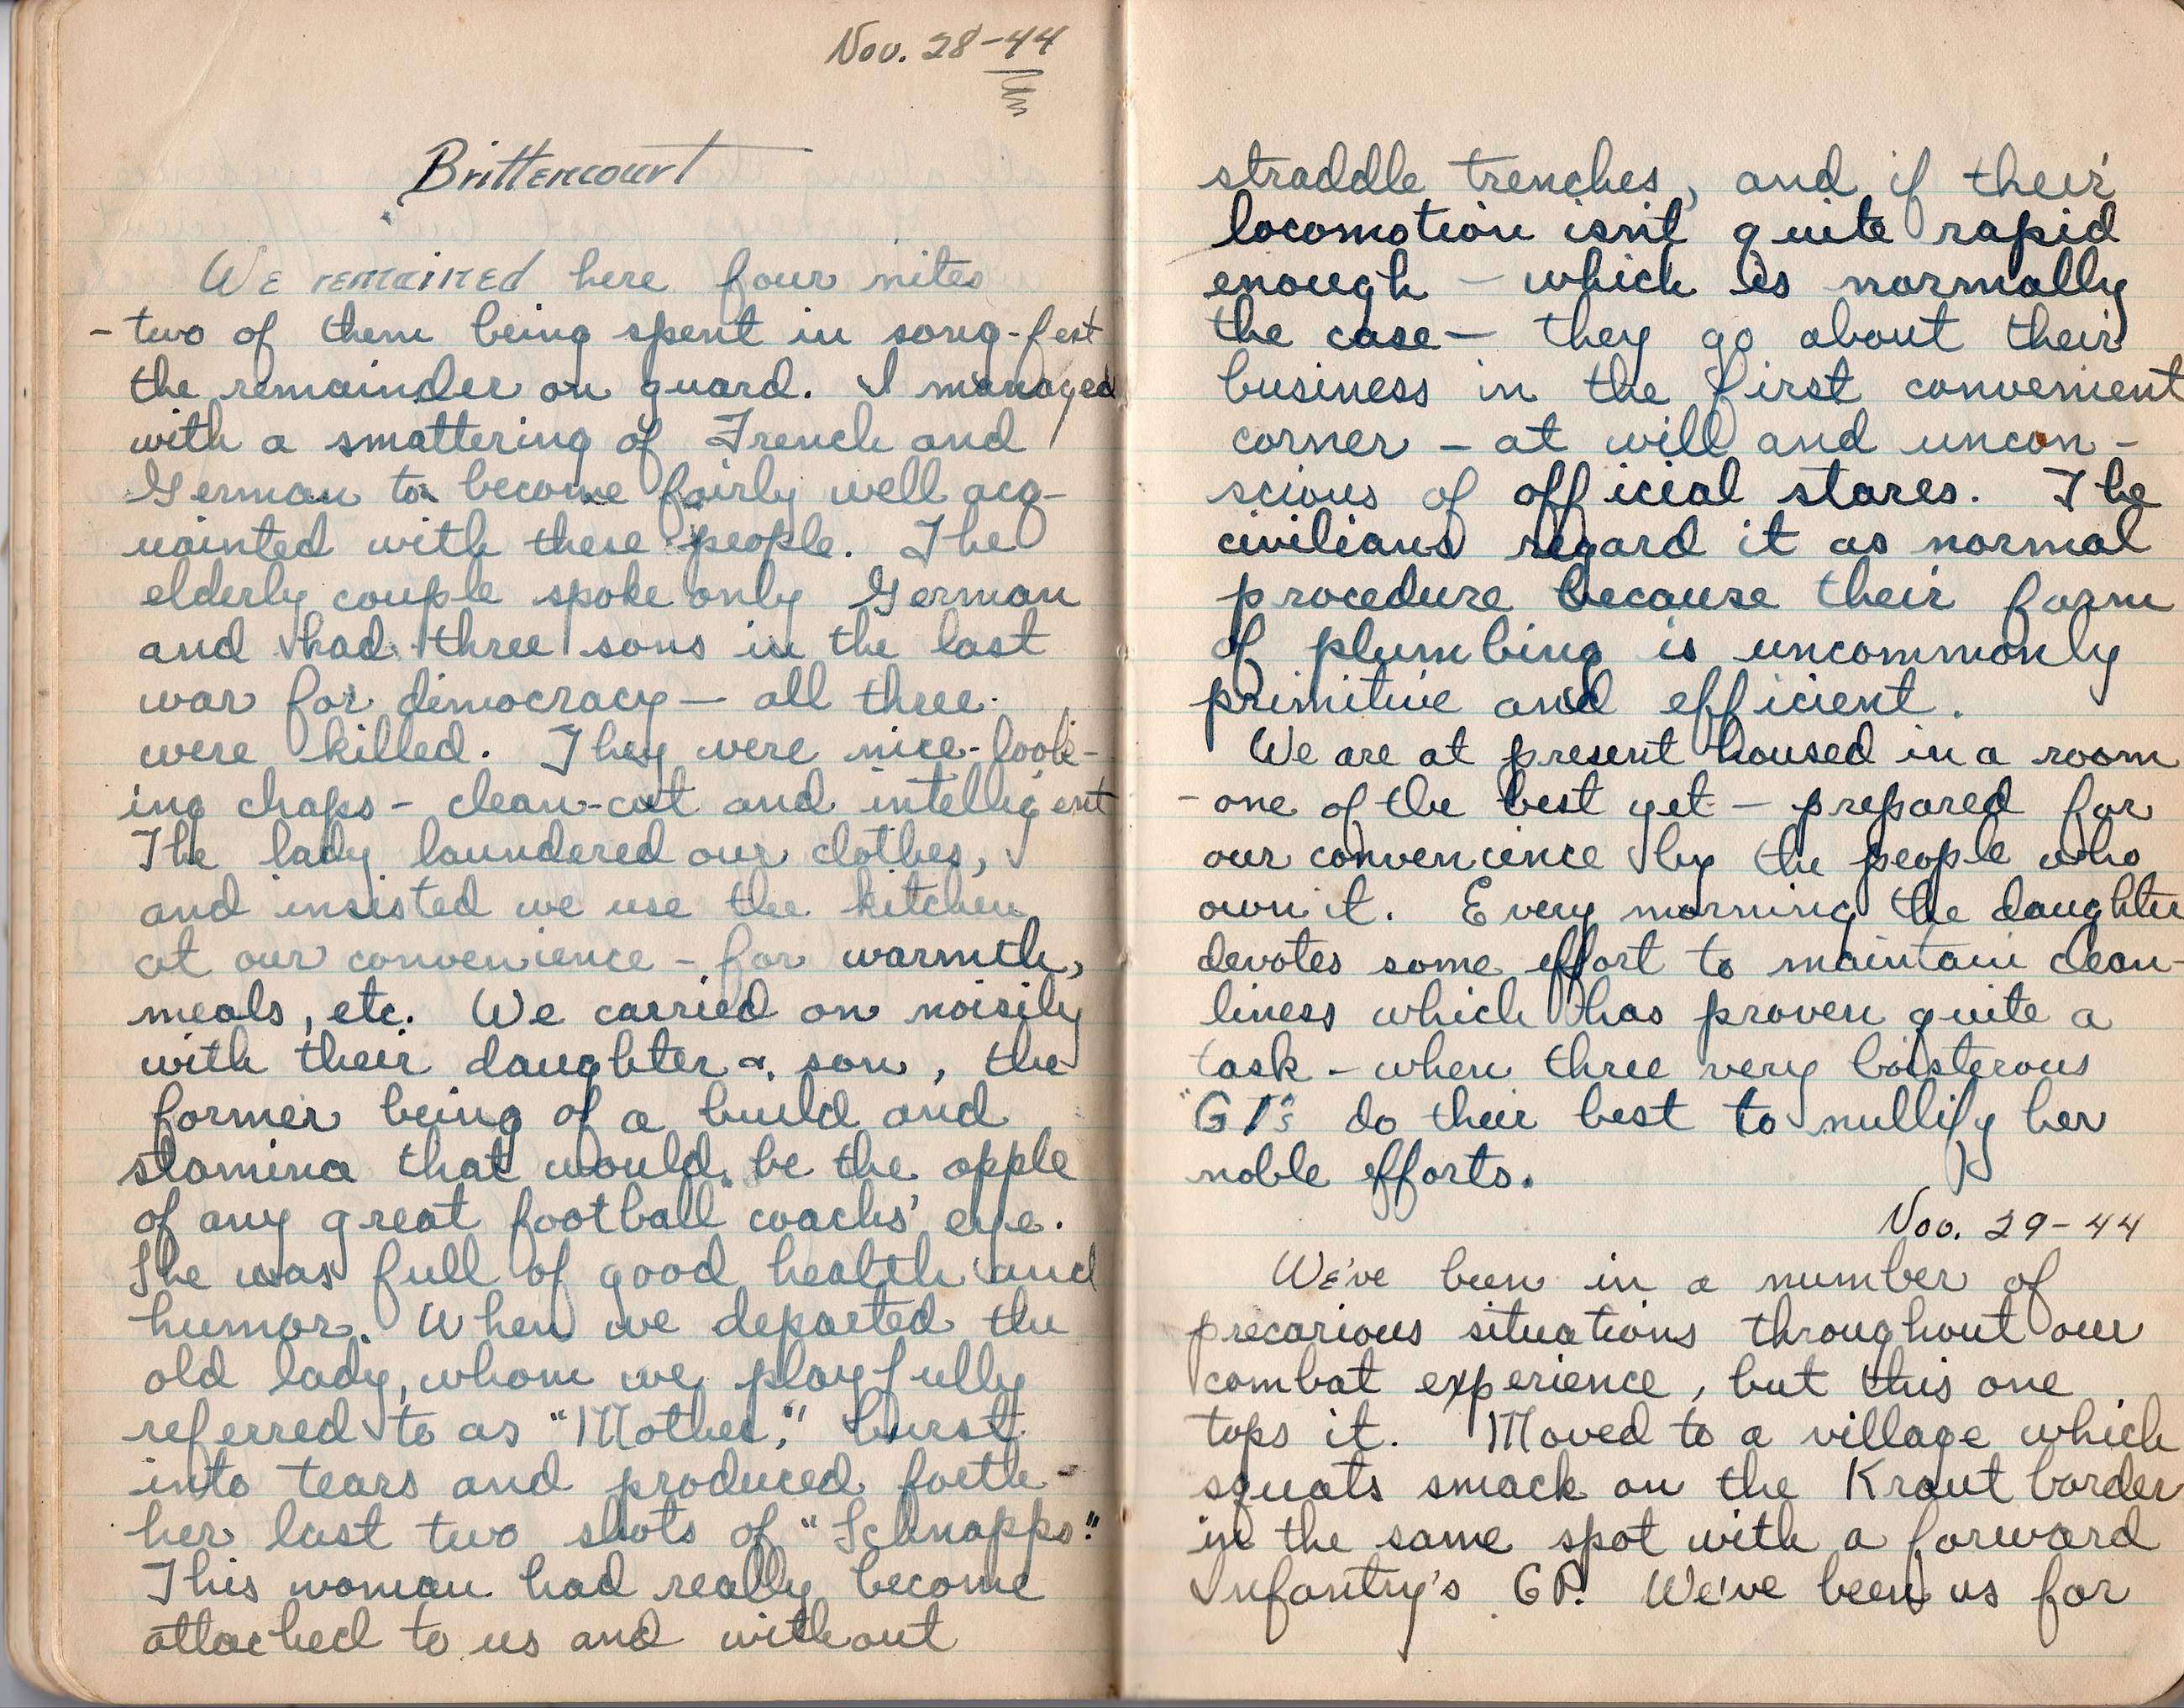 Nov. 28-44
Brittencourt
We remained here four nites
- two of them being spent in song-fest
the remainder on guard. I managed
with a smattering of French and
German to become fairly well acq-
uainted with these people. The
elderly couple spoke only German
and had three sons in the last
war for dimocracy - all three
were killed. They were nice-look-
ing chaps - clean-cut and intelligent
The lady laundered our clothes,
and insisted we use the kitchen
at our convenience - for warmth,
meals, etc. We carried on noisily
with their daughter & son, the
former being of a build and
stamina that would be the apple
of any great football coachs' eye.
She was full of good health and
humor. When we departed the
old lady, whom we playfully
referred to as "Mother," burst
into tears and produced forth
her last two shots of "Schnapps."
This woman had really become
attached to us and without
straddle trenches, and if their
locomotion isn't quite rapid
enough - which is normally
the case - they go about their
business in the first convenient
corner - at will and uncon-
scious of official stares. The
civilians regard it as normal
procedure because their form
of plumbing is uncommonly
primitive and efficient.
We are at present housed in a room
- one of the best yet - prepared for
our convencience by the people who
own it. Every morning the daughter
devotes some effort to maintain clean-
liness which has proven quite a
task - when three very boisterous
"GI's do their best to nullify her
noble efforts.
Nov. 29-44
We've been in a number of
precarious situations throughout our
combat experience, but this one
tops it. Moved to a village which
squats smack on the Kraut border
in the same spot with a forward
Infantry's CP. We've been us for